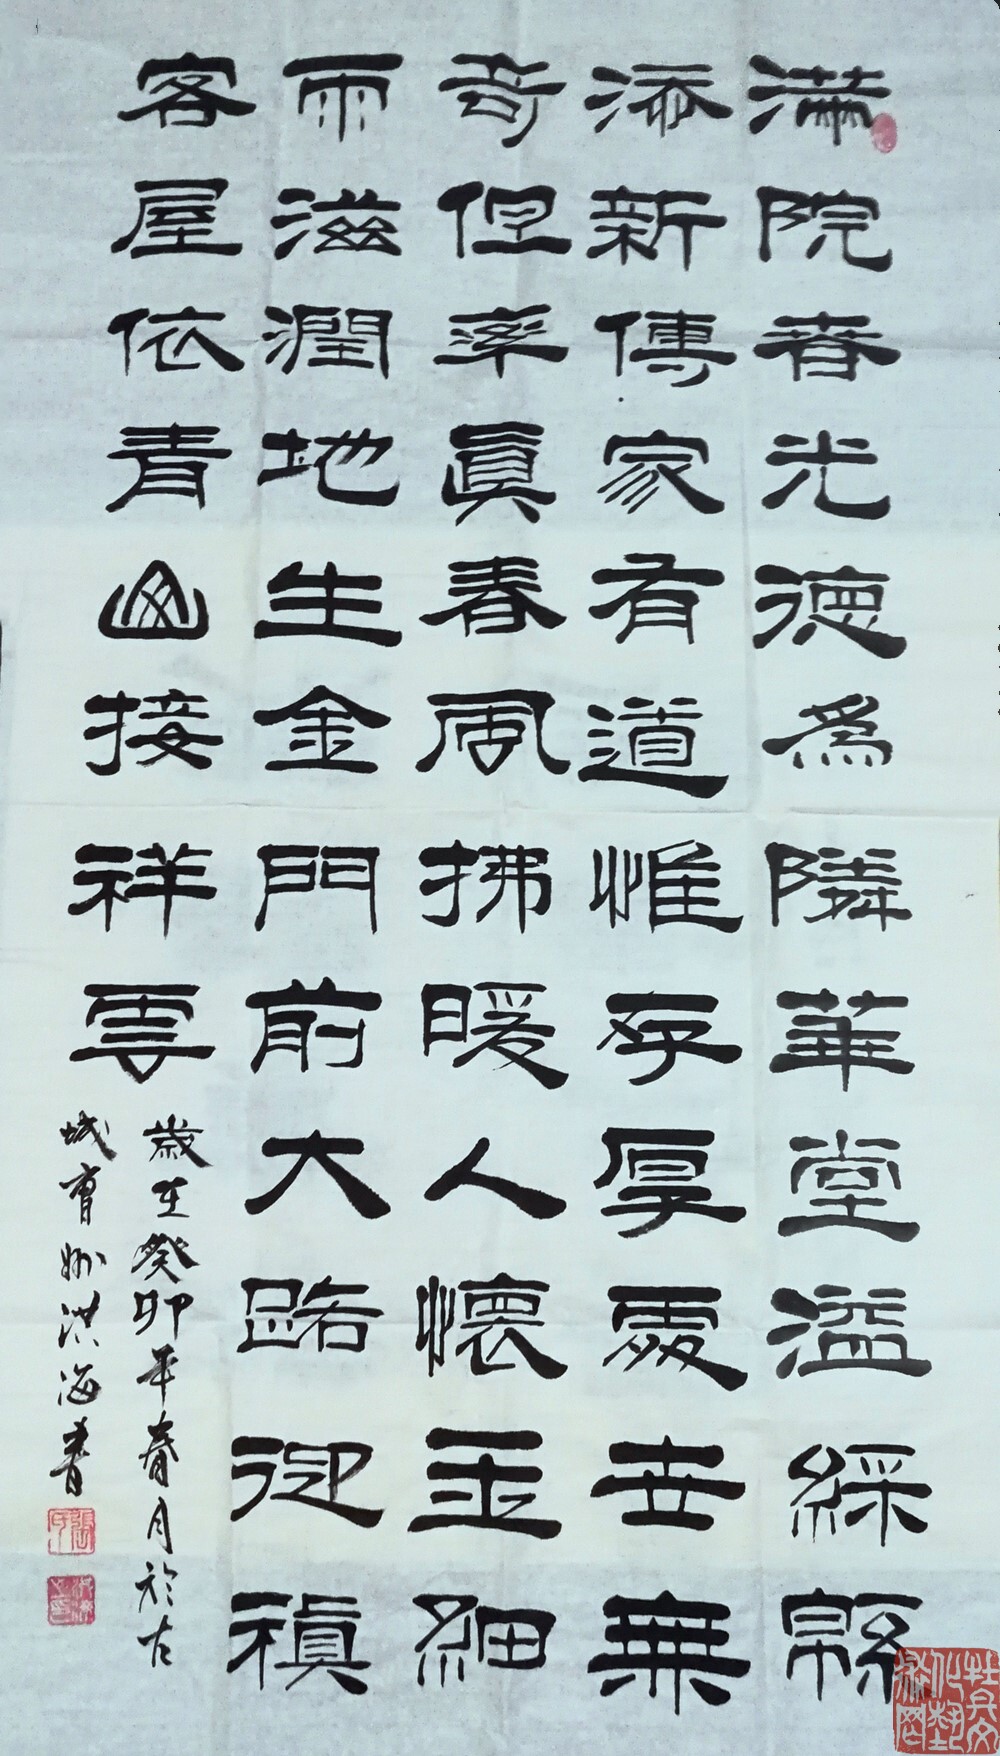 满院春光德為隣華堂溢綵緜
添新傳家有道惟存厚處世無
奇但率真春風拂暖人懷玉細
雨滋潤地生金門前大路迎禎
客屋依青山接祥雲
歲在癸卯年春月於古
城曹州洪海書